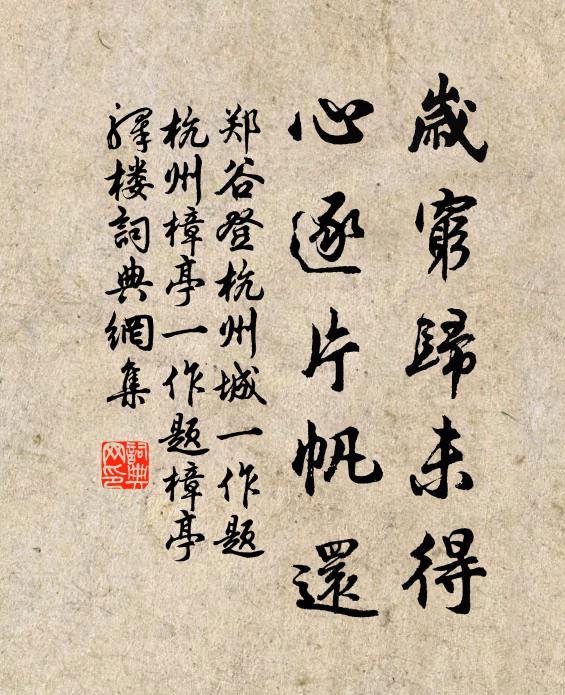 歲窮歸未得
心逐片帆還
郑谷登杭州城一作题
杭州樟亭一作题樟亭
驛楼詞典網集
詞典网印